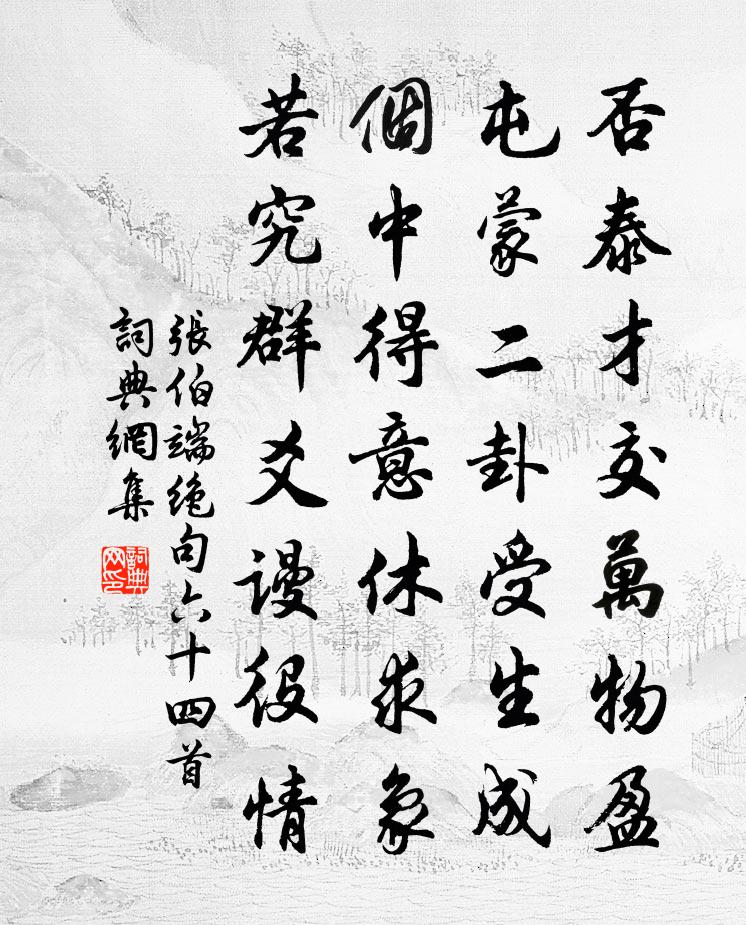 否泰才交萬物盈
屯蒙二卦受生成
個中得意休求象
若究群爻謾役情
張伯端絶句六十四首
詞典網集
詞典網印